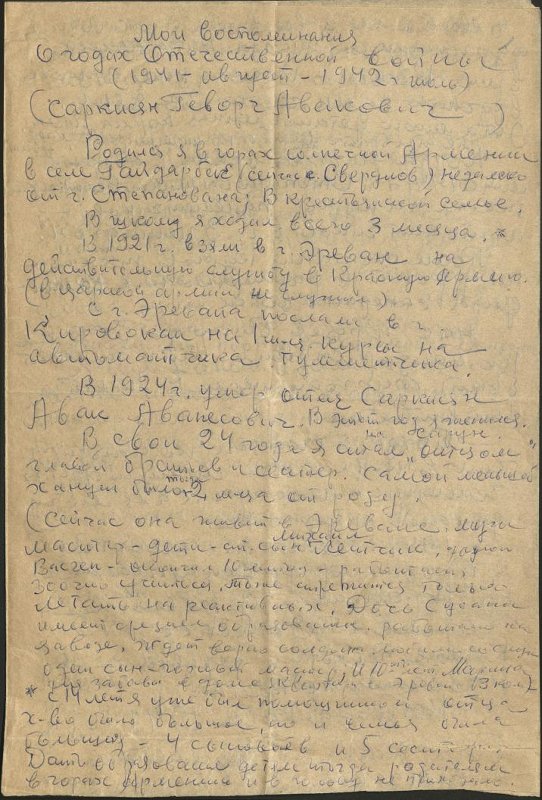 Мои воспоминания
о годах Отечественной войны
(1941 - август - 1942 июль)
(Саркисян Геворг Авакович)
Родился я в горах солнечной Армении
в селе Гайдарбек (сейчас Свердлов) недалеко
от г. Степанована; В крестьянской семье.
В школу я ходил всего 3 месяца. *
В 1921 г. взяли в г. Эреван на
действительную службу в Красную Армию.
(в царской армии не служил)
С г. Эревана послали в г.
Кировокан на курсы на
автоматчика пулеметчика.
В 1924 г. умер отец Саркисян
Авак Авакесович. В этот год я женился.
на
В свои 24 года я стал „отцом"
главой братьев и сестер. Самой меньшей
тогда
было 2 м-ца от роду.
(Сейчас она живет в Эреване. муж
Михаил
мастер - дети - ст. сын
Вазген - окончил 10 - работает
Заочно учится, тоже стремится только
летать на реактивных. Дочь Сусана
имеет среднее образование. работает на
заводе. ждет
один сын
* С 14 лет я уже был помощником отца
х-во было большое, но и семья была
большая - 4 сыновьев и 5 сестер.
Дать образование детям тогда родителям
в горах Армении и в голову не приходило.